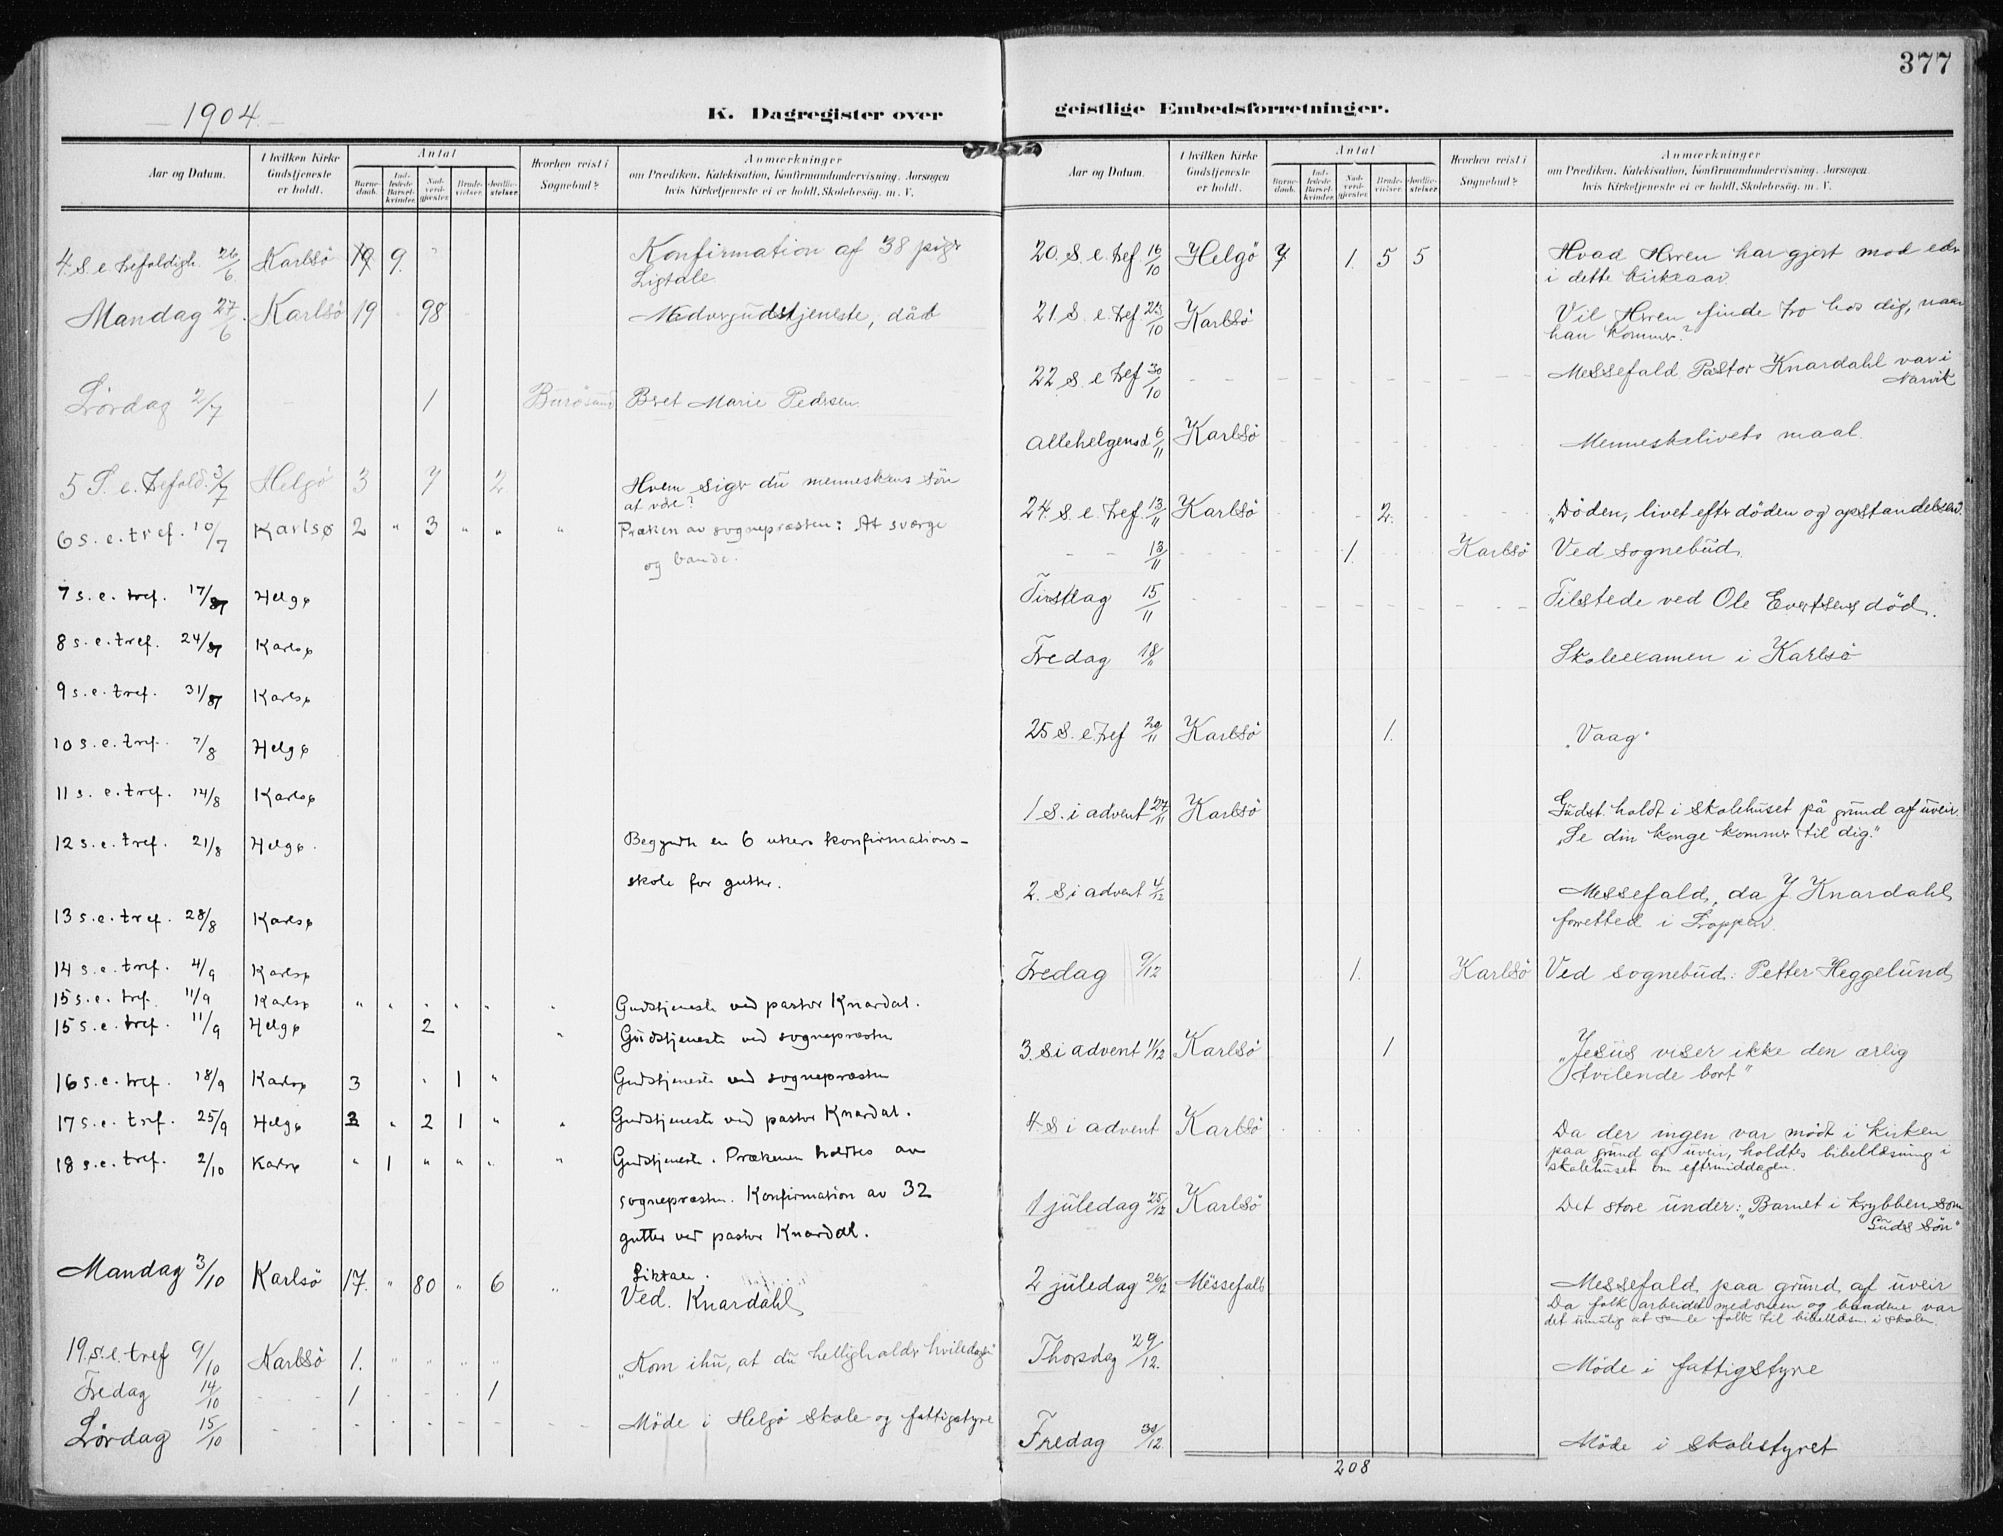 377
1904
K. Dagregister over
Aar og Datum.
I hvilken Kirke Gudstjeneste er holdt.
Antal
Barnedaab.
Indledede Barselkvinder.
Nadverdgjæster.
Brudevielser.
Jordfæstelser.
Hvorhen reist i Sognebud?
Anmærkninger
om Prædiken, Katekisation, Konfirmandundervisning, Aarsagen
hvis Kirketjeneste ei er holdt, Skolebesøg. m. V.
4 S. e. trefoldigh. 26/6 Karlsö 9. Konfirmation af 38 piger
Ligtale.
Mandag 27/6 Karlsö 19 98 Nadvergudstjeneste, dåb
Lördag 2/7 1 Burösund Bret Marie Pedersen.
5 S. e. trefold. 3/7 Helgö 3 7 2 Hvem siger du menneskens sön
at være?
6 s. e. tref. 10/7 Karlsø 2 " 3 " " " Præken av sognepræsten: At sværge
og bande.
7 s. e. tref. 17/7 Helgø
8 s. e. tref. 24/7 Karlsø
9 s. e. tref. 31/7 Karlsø
10 s. e. tref. 7/8 Helgø
11 s. e. tref. 14/8 Karlsø
12 s. e. tref. 21/8 Helgø. Begyndte en 6 ukers konfirmations-
skole for gutter.
13 s. e. tref. 28/8 Karlsø
14 s. e. tref. 4/9 Karlsø
15 s. e. tref. 11/9 Karlsø " " " " " " Gudstjeneste ved pastor Knardal.
15 s. e. tref. 11/9 Helgø 2 " Gudstjeneste ved sognepræsten
16 s. e. tref. 18/9 Karlsø 3 " 1 " Gudstjeneste ved sognepræsten
17 s. e. tref. 25/9 Helgø 3 " 2 1 " " Gudstjeneste ved pastor Knardal.
18 s. e. tref. 2/10 Karlsø " 1 " " " " Gudstjeneste. Prækenen holdtes av
sognepræsten. Konfirmation av 32
gutter ved pastor Knardal.
Liktale.
Mandag 3/10 Karlsö 17. " 80 " 6 " Ved. Knardahl
19. s. e. tref 9/10 Karlsö 1. " " " " "Kom ihu, at du helligholder hviledagen"
Fredag 14/10 - - 1 - - - 1
Lördag 15/10 Möde i Helgö skole og fattigstyre
geistlige Embedsforretninger.
Aar og Datum.
I hvilken Kirke Gudstjeneste er holdt.
Antal
Barnedaab.
Indledede Barselkvinder.
Nadverdgjæster.
Brudevielser.
Jordfæstelser.
Hvorhen reist i Sognebud?
Anmærkninger
om Prædiken, Katekisation, Konfirmandundervisning, Aarsagen
hvis Kirketjeneste ei er holdt, Skolebesøg. m. V.
20. S. e. tref 16/10 Helgö 7 1. 5 5 Hvad Herren har gjort mod eder
i dette kirkeaar.
21 S. e. tref 23/10 Karlsö Vil Herren finde tro hos dig, naar
han kommer?
22 s. e tref 30/10 Messefald Pastor Knardahl var i
Narvik
Allehelgensd 6/11 Karlsö Menneskelivets maal.
24. s. e. tref. 13/11 Karlsö 2. "Döden, livet efter döden og opstandelsen.
- - 13/11 1. Karlsö Ved sognebud.
Tirsdag 15/11 Tilstede ved Ole Evertsens död.
Fredag 18/11 Skoleexamen i Karlsö
25 S. e. tref 20/11 Karlsö 1. "Vaag"
1 S. i advent 27/11 Karlsö Gudst. holdt i skolehuset på grund af uveir.
"Se din konge kommer til dig."
2. S i advent 4/12 Messefald, da J. Knardahl
forretted i Loppen.
Fredag 9/12 1. Karlsö Ved sognebud: Petter Heggelund
3. S i advent 11/12 Karlsö 1 "Jesus viser ikke den ærlig
tvilende bort"
4. S i advent Karlsö Da der ingen var mödt i kirken
paa grund af uveir, holdtes bibellæsning i
skolehuset om eftermiddagen.
1 juledag 25/12 Karlsö Det store under: "Barnet i krybben som
Guds Sön"
2 juledag 26/12 Messefald Messefald paa grund af uveir
Da folk arbeidet med sneen og baadene var
det umulig at samle folk til bibellæsn. i skolen.
Thorsdag 29/12. Möde i fattigstyre
Fredag 30/12 Möde i skolestyret
208